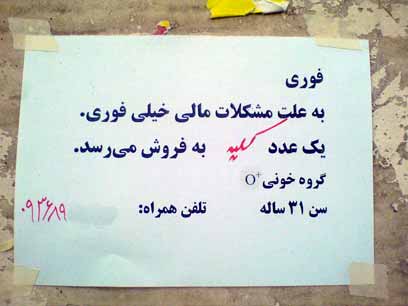 فوری
به علت مشکلات مالی خیلی فوری.
یک عدد کلیه به فروش می‌رسد.
گروه خونی O+
سن ۳۱ ساله تلفن همراه: ۰۹۳۶۸۱۹